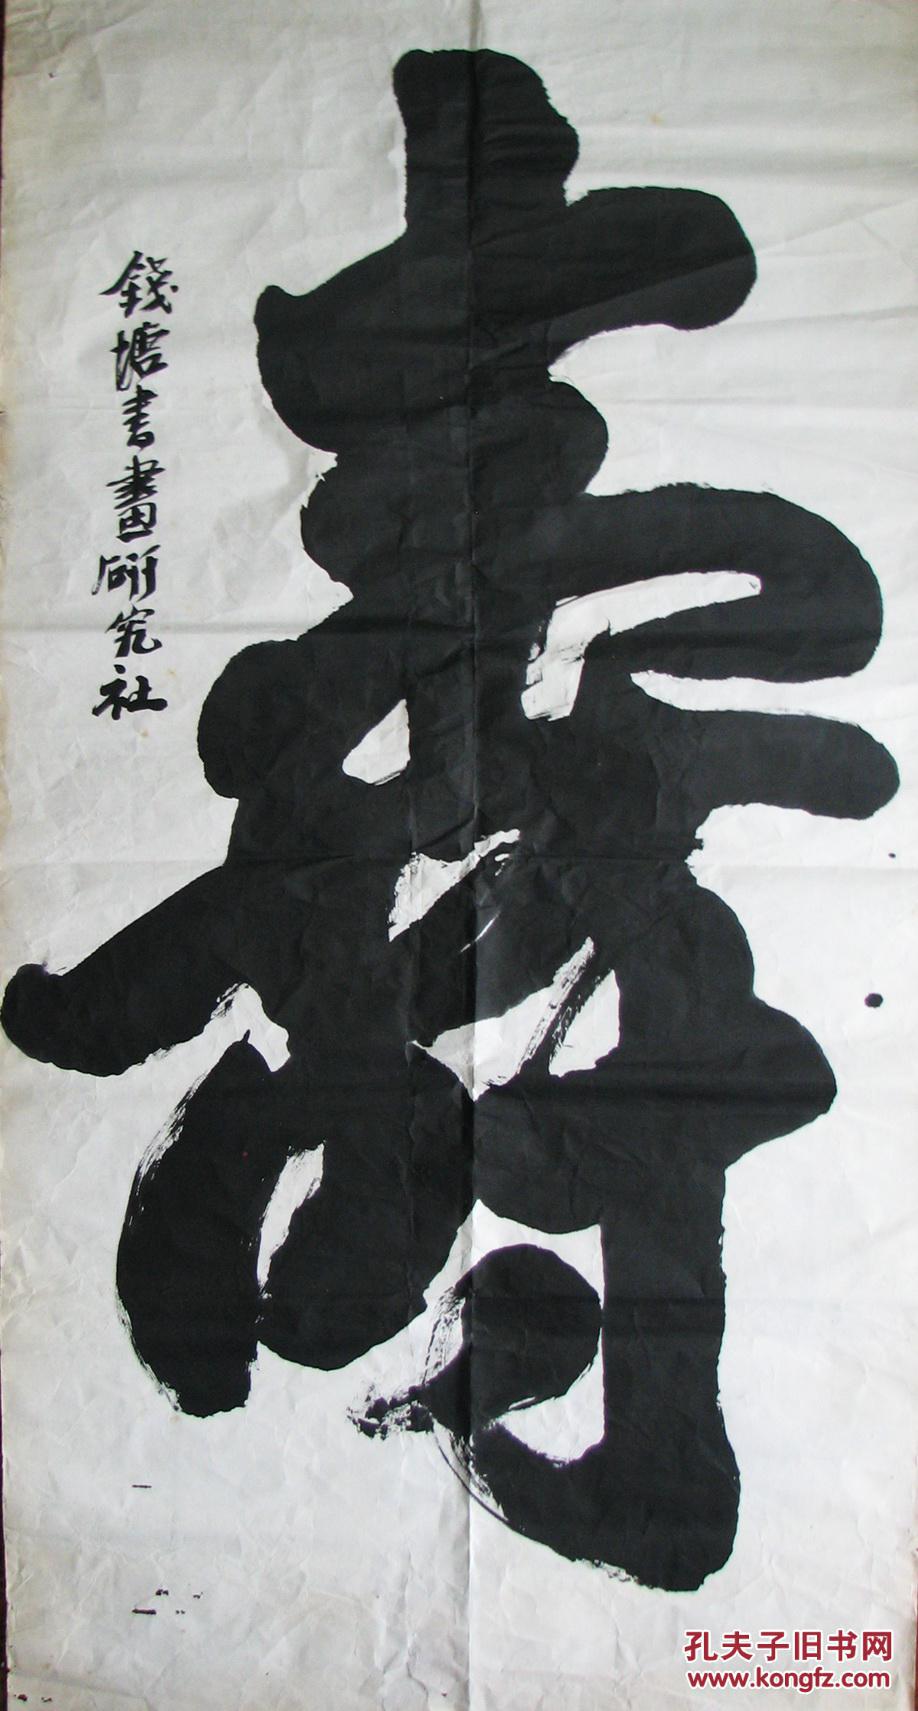 壽
錢塘書畫研究社
孔夫子旧书网
www.kongfz.com